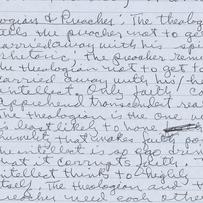 ogian & Preacher: The theolog
the preacher not to ge
carried away with his spi
rhetoric, the preacher remi
the theologian not to get to
carried away with his/he
intellect. Only faith ca
apprehend transcendent rea
The theologian is the one w
is least likely to have
humility that makes faith pos
The intellect is so ego driv
that it corrupts faith.
intellect thinks to highly
itself. The theologian and t
preacher need each othe